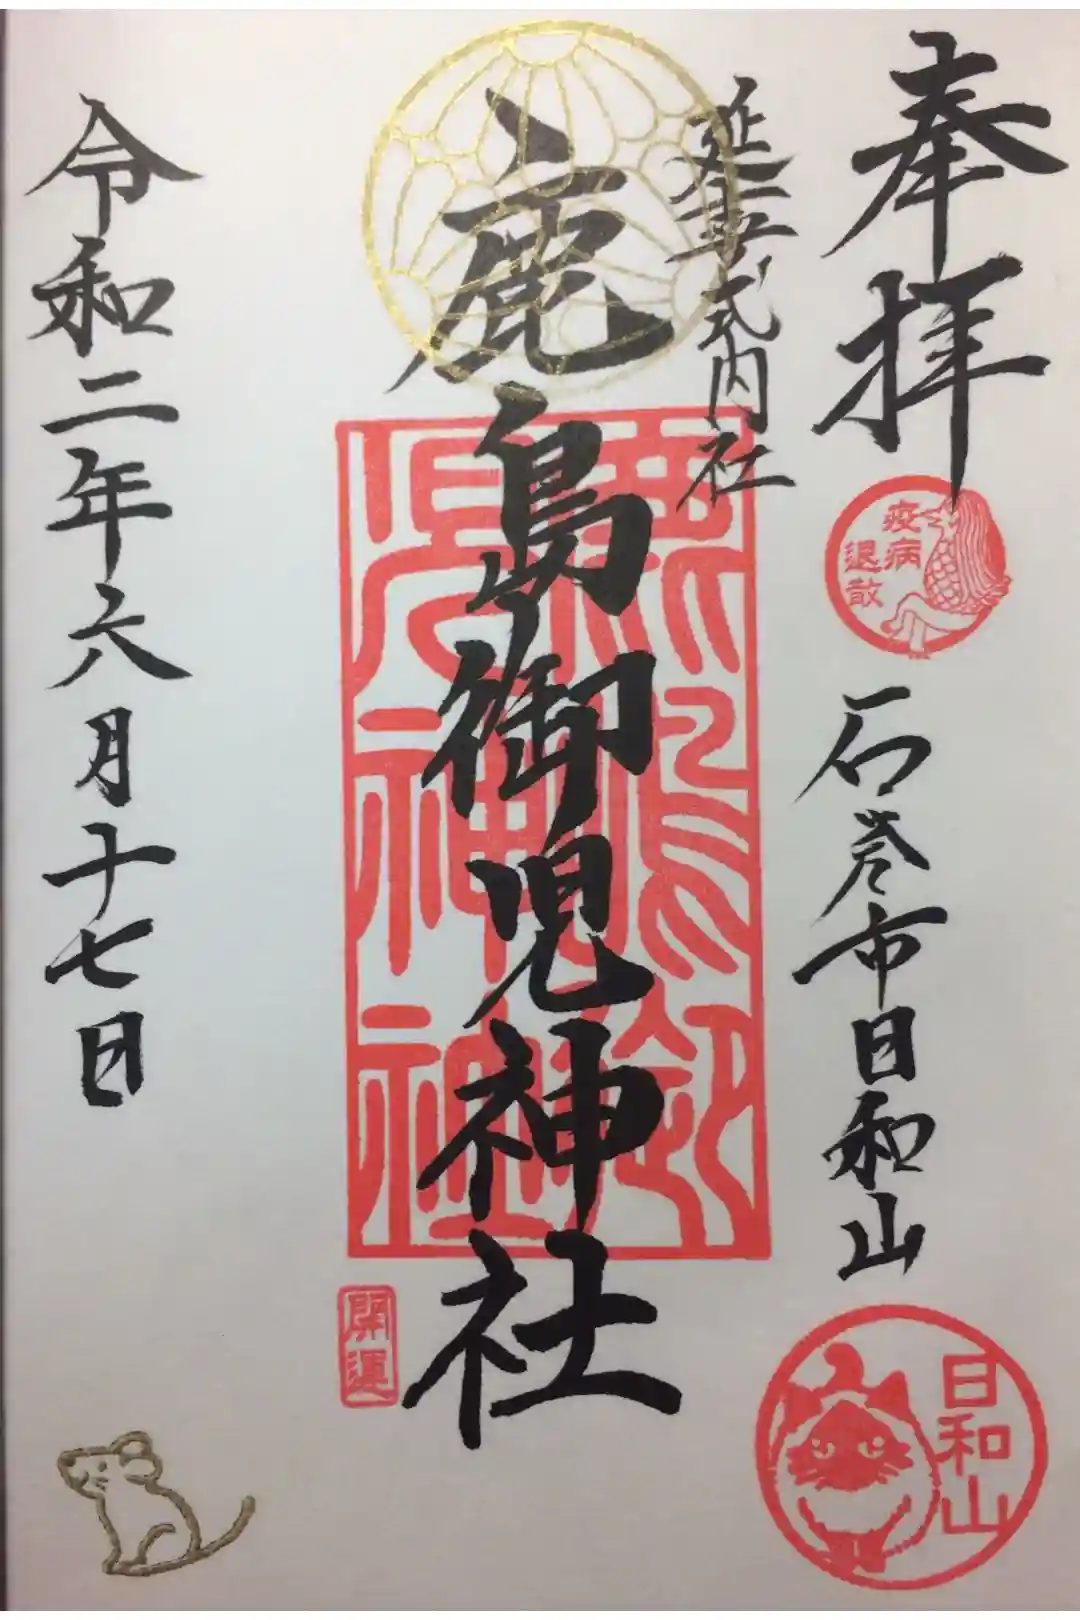 奉拝
疫病
退散
石巻市日和山
日和山
延喜式内社
鹿島御児神社
開運
令和二年六月十七日